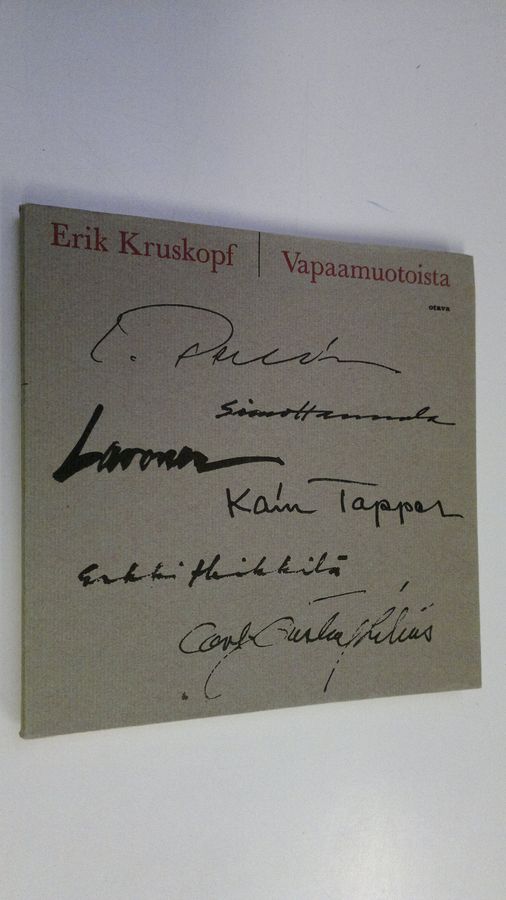 Erik Kruskopf | Vapaamuotoista
otava
Simo Hannula
Lavonen
Kain Tapper
Erkki Heikkilä
Carl Gustaf Lilius